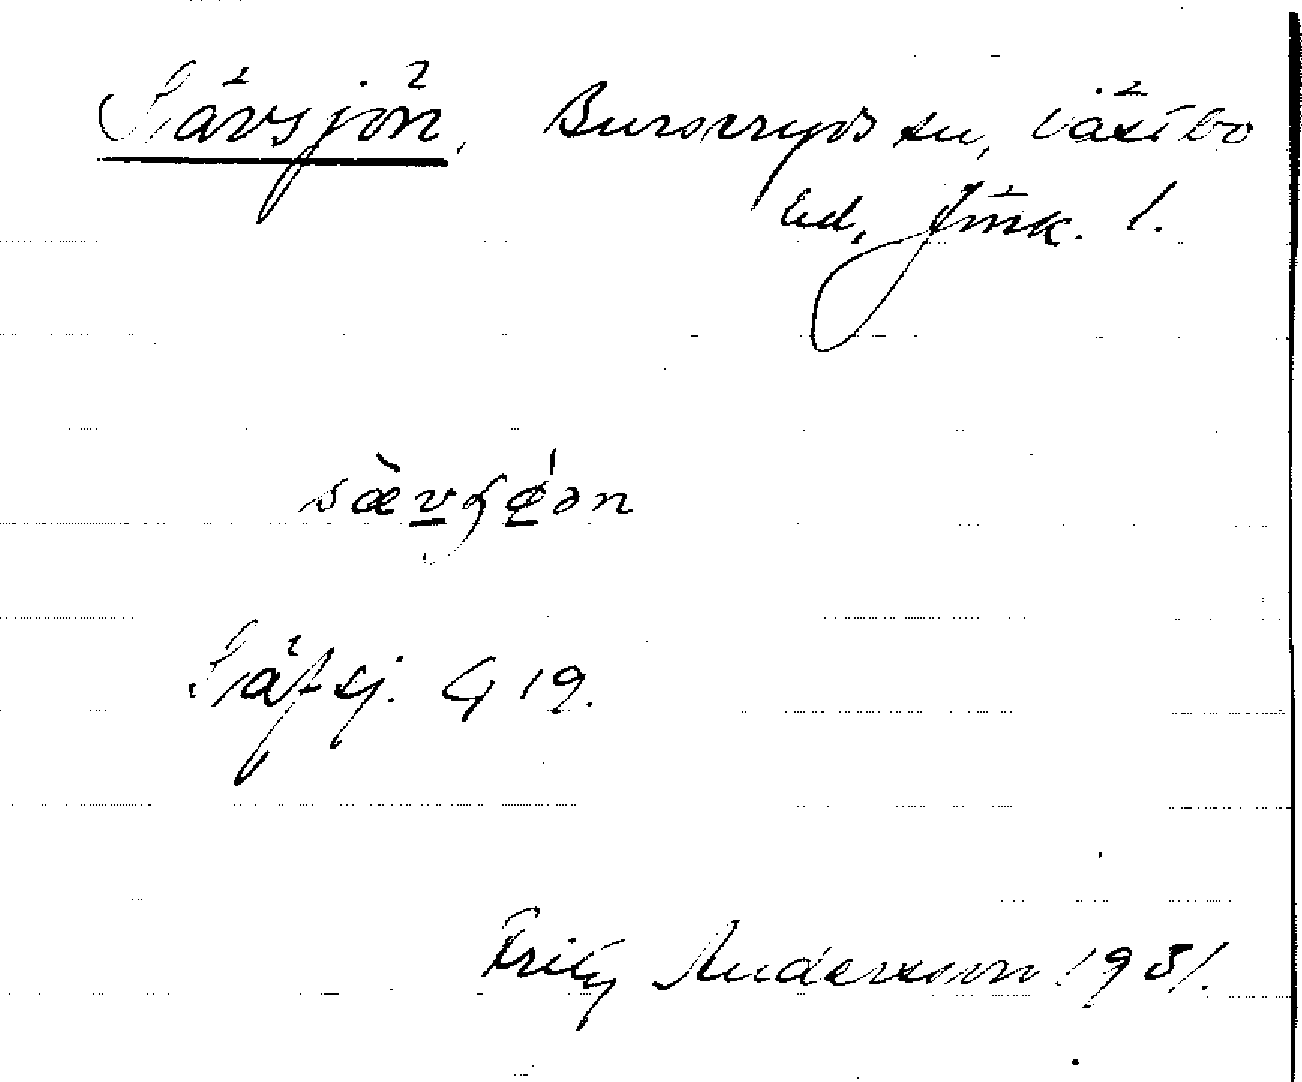 Sävsjön, Burseryds sn, Västbo
hd, Jönk. l.
Säfsj. G 19.
Fritz Andersson 1931.